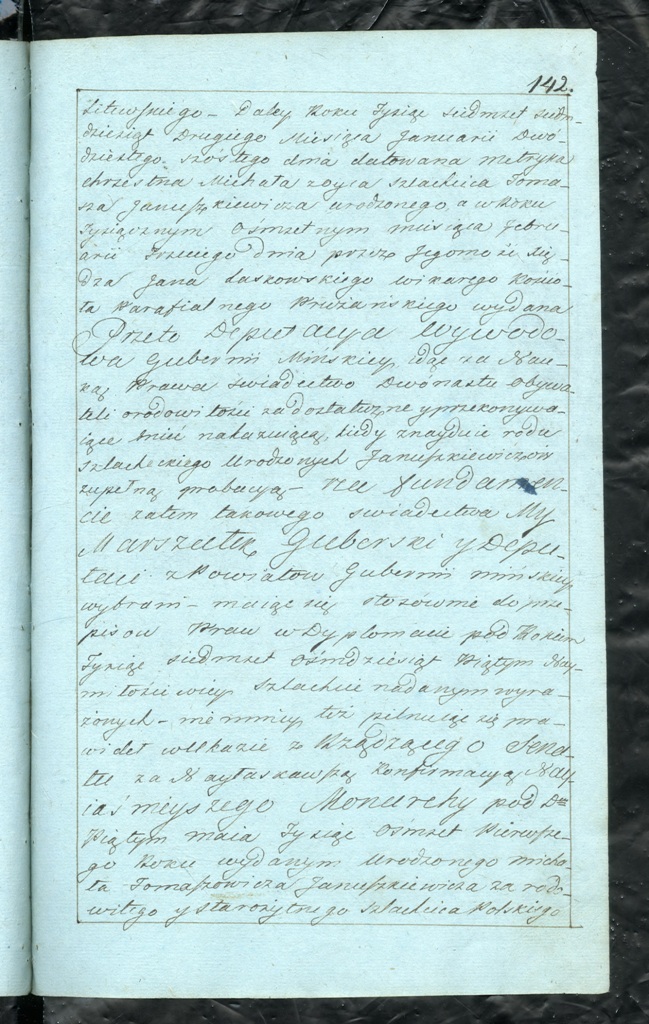 142.
Litewskiego – Daley Roku Tysiąc siedmset siedm-
dziesiąt Drugiego Miesiąca Januarii Dwó-
dziestego szóstego dnia datowana metryka
chrzestna Michała z oyca szlachcica Toma-
sza Januszkiewicza urodzonego, a w Roku
Tysiącznym Osmsetnym miesiąca febru-
arii Trzeciego dnia przez Jegomość Xię-
dza Jana Laskowskiego wikarego Kościo-
ła Parafialnego wydana
Przeto Deputacya Wywodo-
wa Gubernii Mińskiey, idąc za Nau-
ką Prawa świadectwo Dwónastu Obywa-
teli o rodowitości za dostateczne y przekonywa-
iące mieć nakazuiącą, kiedy znayduie rodu
szlacheckiego Urodzonych Januszkiewiczow
zupełną probacyą – na fundamen-
cie zatem takowego świadectwa My
Marszałek Guberski y Depu-
taci z Powiatow Gubernii mińskiey
wybrani – maiąc się stosównie do prze-
pisow Praw w Dyplomacie pod Rokiem
Tysiąc siedmset Ośmdziesiąt Piątym Nay-
miłościwiey szlachcie nadanym wyra-
żonych – niemniey też pilnuiąc się pra-
wideł w Ukazie z Rządzącego Sena-
tu za Nayłaskawszą Konfirmacyą Nay-
iaśnieyszego Monarchy pod Dm
Piątym maia Tysiąc Ośmset Pierwsze-
go Roku wydanym Urodzonego micha-
ła Tomaszowicza Januszkiewicza za rodo-
witego y starożytnego szlachcica Polskiego